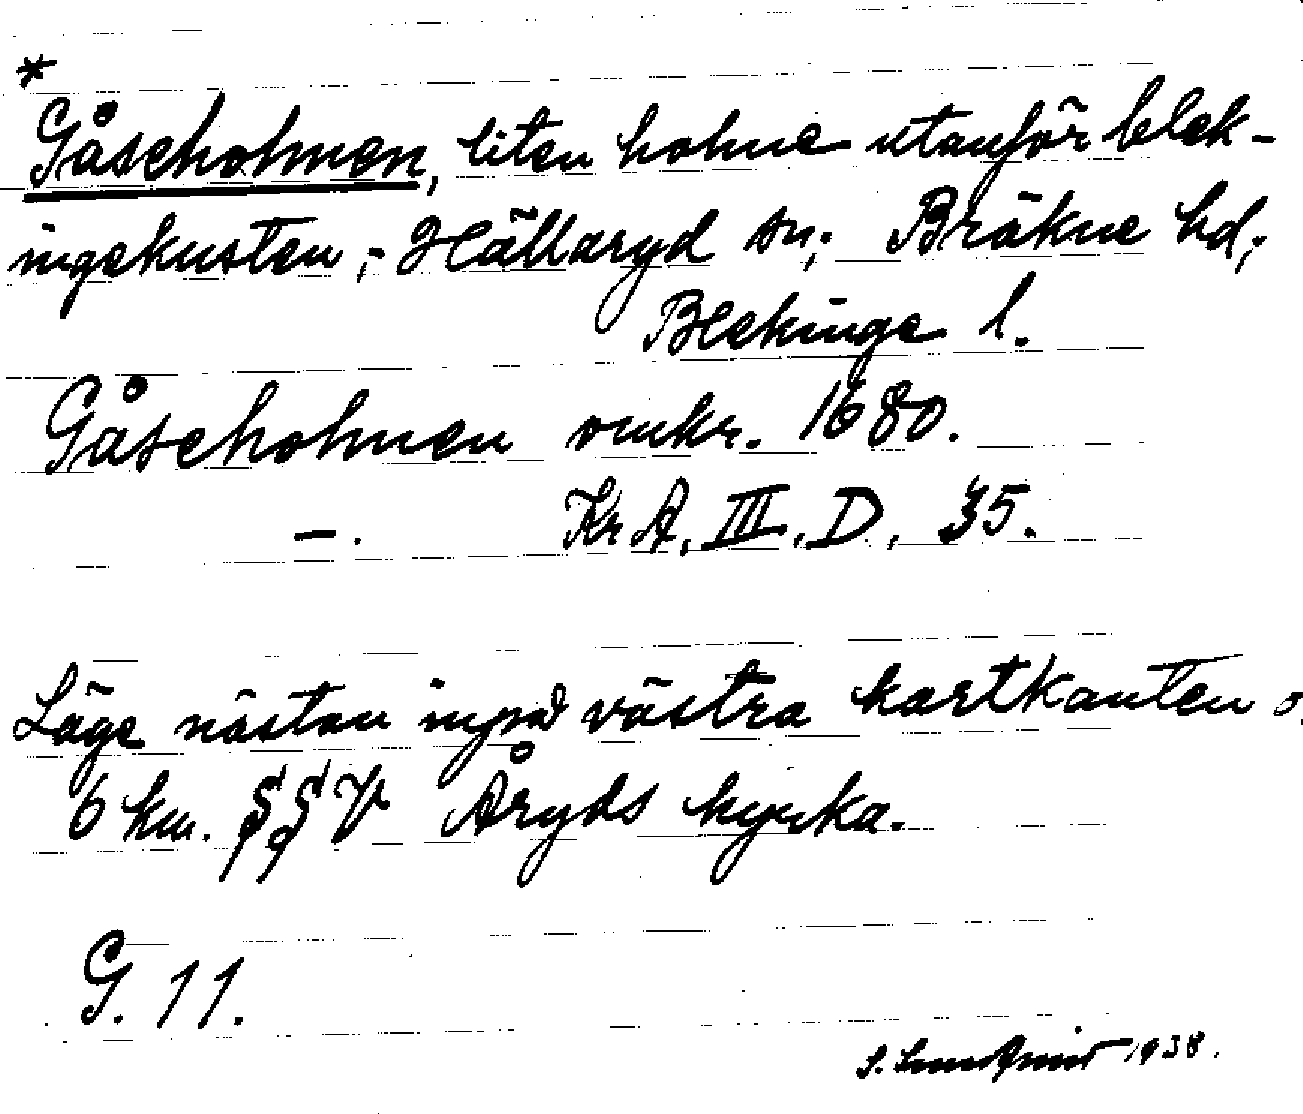 *
Gåseholmen, liten holme utanför blek-
ingekusten, - Hällaryd sn; Bräkne hd,
Blekinge l.
Gåseholmen omkr. 1680.
—. Kr A, III, D, 35.
Läge nästan inpå västra kartkanten o.
6 km. SSV Åryds kyrka.
G. 11.
S. Lundqvist 1938.